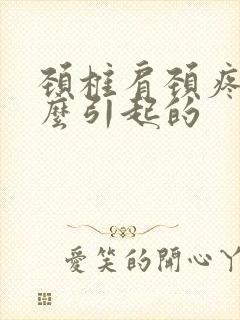 頸柱肩頸疼
麼引起的
愛笑的開心丫